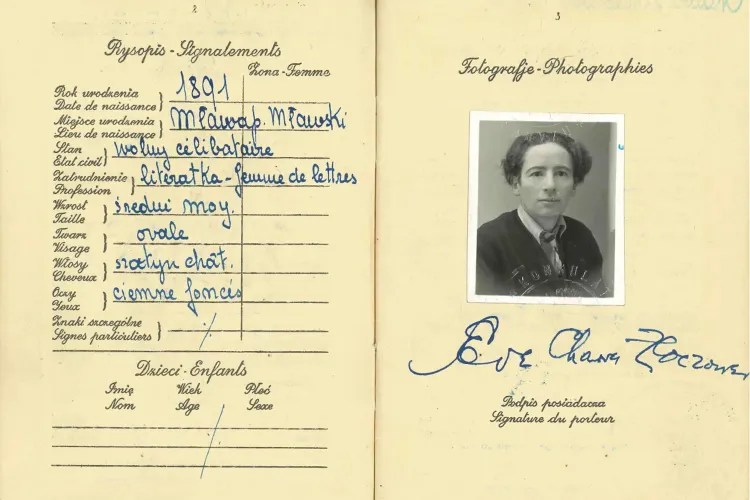 2
Rysopis - Signalements
Żona - Femme
Rok urodzenia
Date de naissance } 1891
Miejsce urodzenia
Lieu de naissance } Mława p. Mławski
Stan
Etat civil } wolny célibataire
Zatrudnienie
Profession } literatka - femme de lettres
Wzrost
Taille } średni moy.
Twarz
Visage } ovale
Włosy
Cheveux } szatyn chât.
Oczy
Yeux } ciemne foncés
Znaki szczególne
Signes particuliers }
Dzieci - Enfants
Imię Wiek Płeć
Nom Age Sexe
3
Fotografje - Photographies
Eve Chawa Złoczower
Podpis posiadacza
Signature du porteur